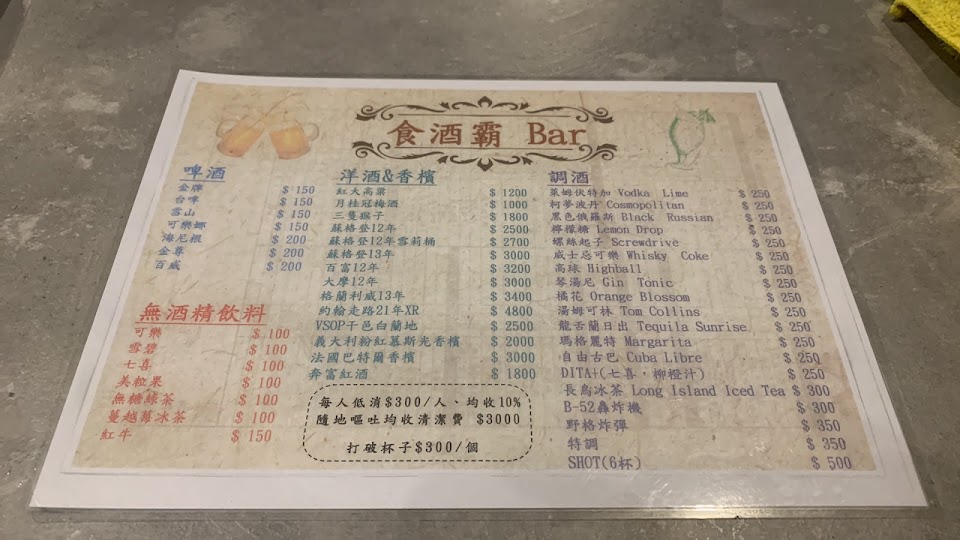 食酒霸 Bar
啤酒
金牌 $ 150
台啤 $ 150
雪山 $ 150
可樂娜 $ 150
海尼根 $ 200
金尊 $ 200
百威 $ 200
無酒精飲料
可樂 $ 100
雪碧 $ 100
七喜 $ 100
美粒果 $ 100
無糖綠茶 $ 100
蔓越莓冰茶 $ 100
紅牛 $ 150
洋酒&香檳
紅大高粱 $ 1200
月桂冠梅酒 $ 1000
三隻猴子 $ 1800
蘇格登12年 $ 2500
蘇格登12年雪莉桶 $ 2700
蘇格登13年 $ 3000
百富12年 $ 3200
大摩12年 $ 3000
格蘭利威13年 $ 3400
約翰走路21年XR $ 4800
VSOP干邑白蘭地 $ 2500
義大利粉紅慕斯光香檳 $ 2000
法國巴特爾香檳 $ 3000
奔富紅酒 $ 1800
每人低消$300/人、均收10%
隨地嘔吐均收清潔費 $3000
打破杯子$300/個
調酒
萊姆伏特加 Vodka Lime $ 250
柯夢波丹 Cosmopolitan $ 250
黑色俄羅斯 Black Russian $ 250
檸檬糖 Lemon Drop $ 250
螺絲起子 Screwdrive $ 250
威士忌可樂 Whisky Coke $ 250
高球 Highball $ 250
琴湯尼 Gin Tonic $ 250
橘花 Orange Blossom $ 250
湯姆可林 Tom Collins $ 250
龍舌蘭日出 Tequila Sunrise $ 250
瑪格麗特 Margarita $ 250
自由古巴 Cuba Libre $ 250
DITA+(七喜．柳橙汁) $ 250
長島冰茶 Long Island Iced Tea $ 300
B-52轟炸機 $ 300
野格炸彈 $ 350
特調 $ 350
SHOT(6杯) $ 500